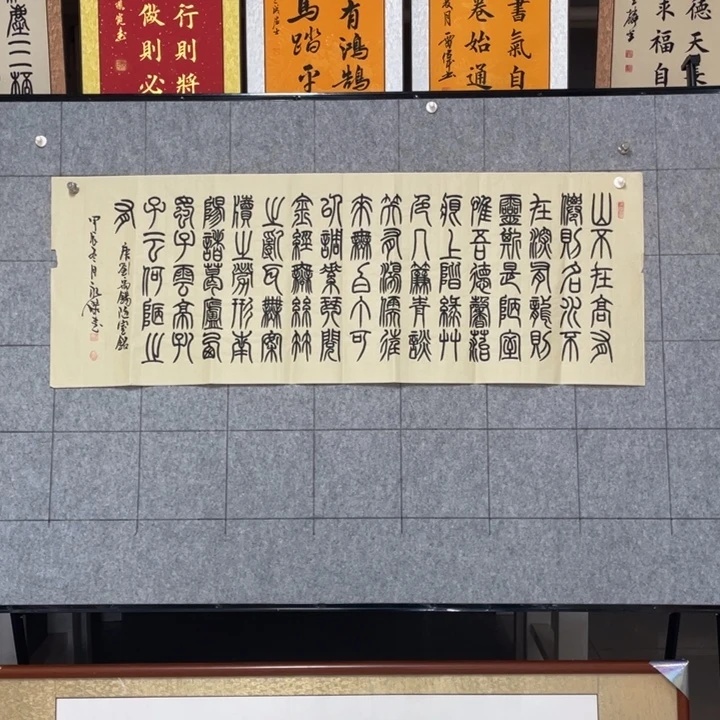 德天長
來福自
書氣自
卷始通
有鴻鵠
馬踏平
行則將
做則必
山不在高有
僊則名水不
在深有龍則
靈斯是陋室
惟吾德馨苔
痕上階綠艸
色入簾青談
笑有鴻儒往
來無白丁可
以調素琴閱
金經無絲竹
之亂耳無案
牘之勞形南
陽諸葛廬西
蜀子雲亭孔
子云何陋之
有
唐劉禹錫陋室銘
甲辰冬月